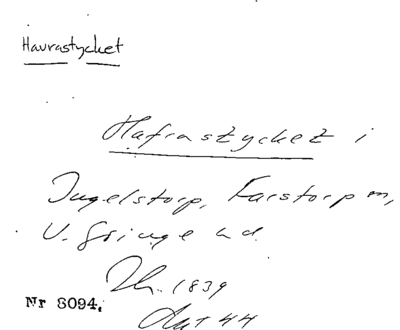 Havrastycket
Hafrastycket i
Ingelstorp, Farstorp m,
V. Göinge hd.
Th. 1839
Akt 44
Nr 8094.